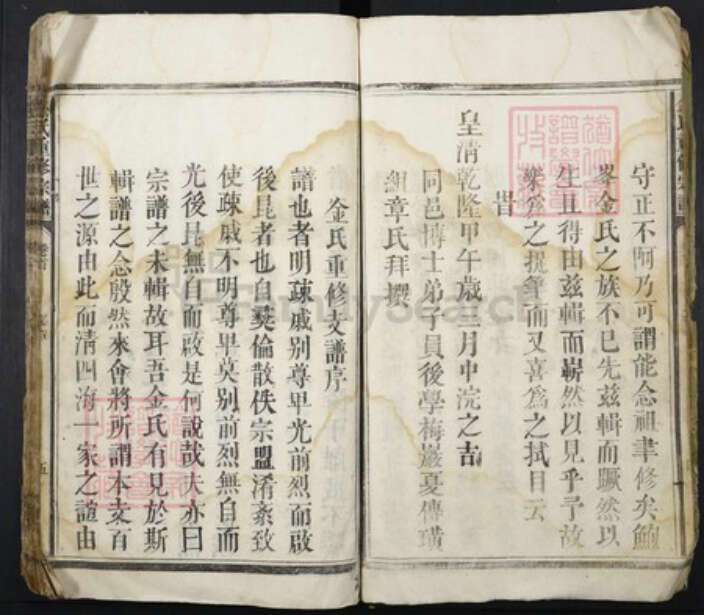 守正不阿乃可謂能念祖聿修矣鮞
峯金氏之族不已先茲輯而蹶然以
生且得由茲輯而嶄然以見乎予故
樂爲之援筆而又喜爲之拭目云
旹
皇清乾隆甲午歲二月中浣之吉
同邑博士弟子員後學梅巖夏傳璜
組章氏拜撰
金氏重修支譜序
譜也者明疎戚别尊卑光前烈而啟
後昆者也自彛倫散佚宗盟淆紊致
使疎戚不明尊卑莫别前烈無自而
光後昆無自而啟是何說哉夫亦曰
宗譜之未輯故耳吾金氏有見於斯
輯譜之念殷然來會將所謂本支百
世之源由此而清四海一家之誼由
氏重修宗譜
卷首
五
FamilySearch